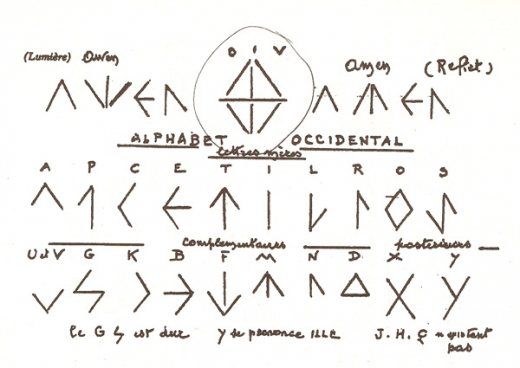 (Lumière) Owen O I V Amen (Reflet)
ALPHABET OCCIDENTAL
lettres mères
A P C E T I L R O S
complémentaires postérieurs
U et V G K B F M N D X Y
le G est dur Y se prononce ILLE J. H. Ç n'existent
pas